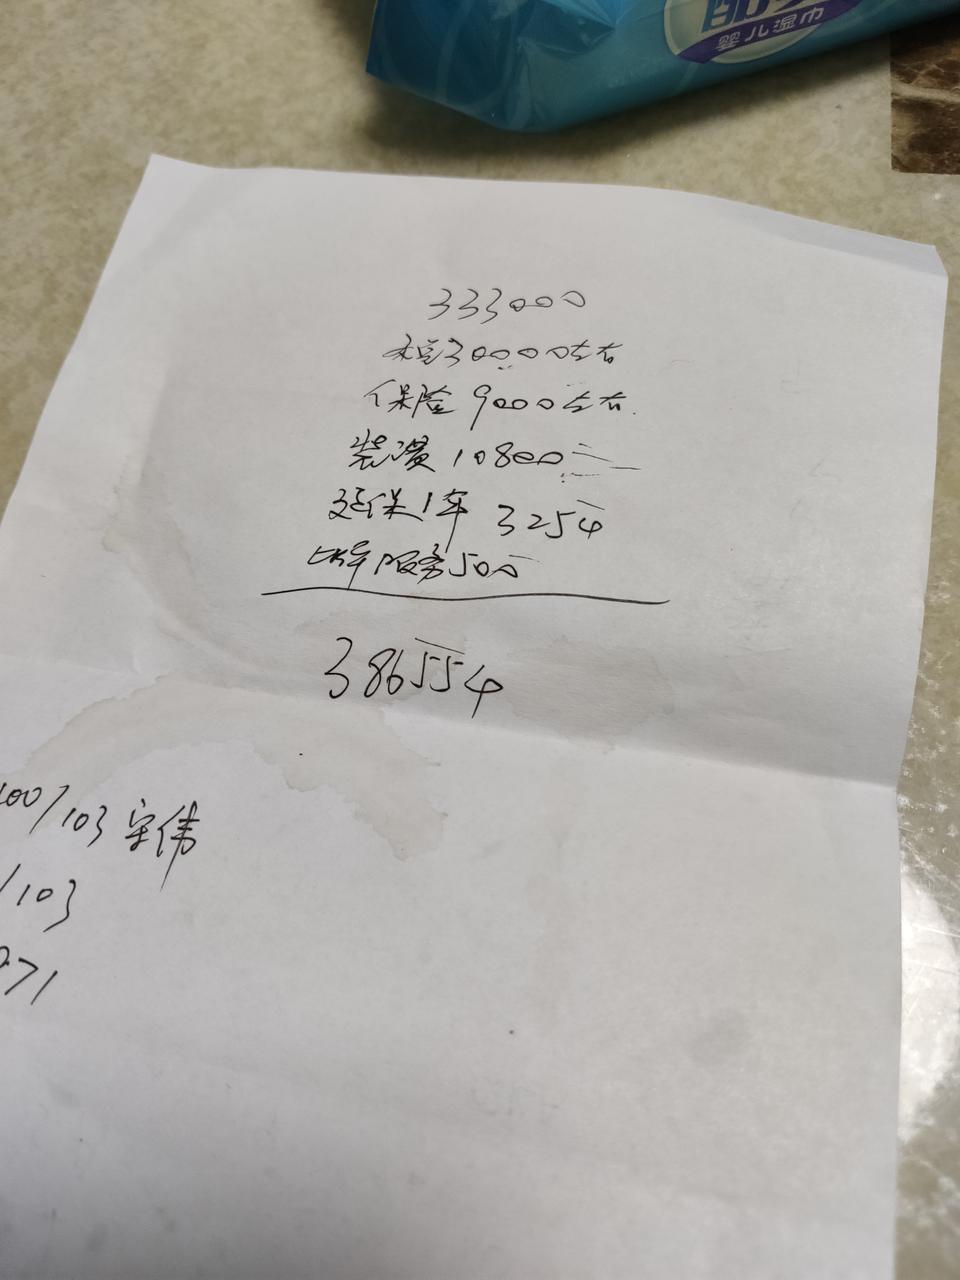 婴儿湿巾
333000
税30000左右
保险9000左右.
装潢10800
延保1年 3254
上牌服务500
386554
400/103 宋伟
/103
271